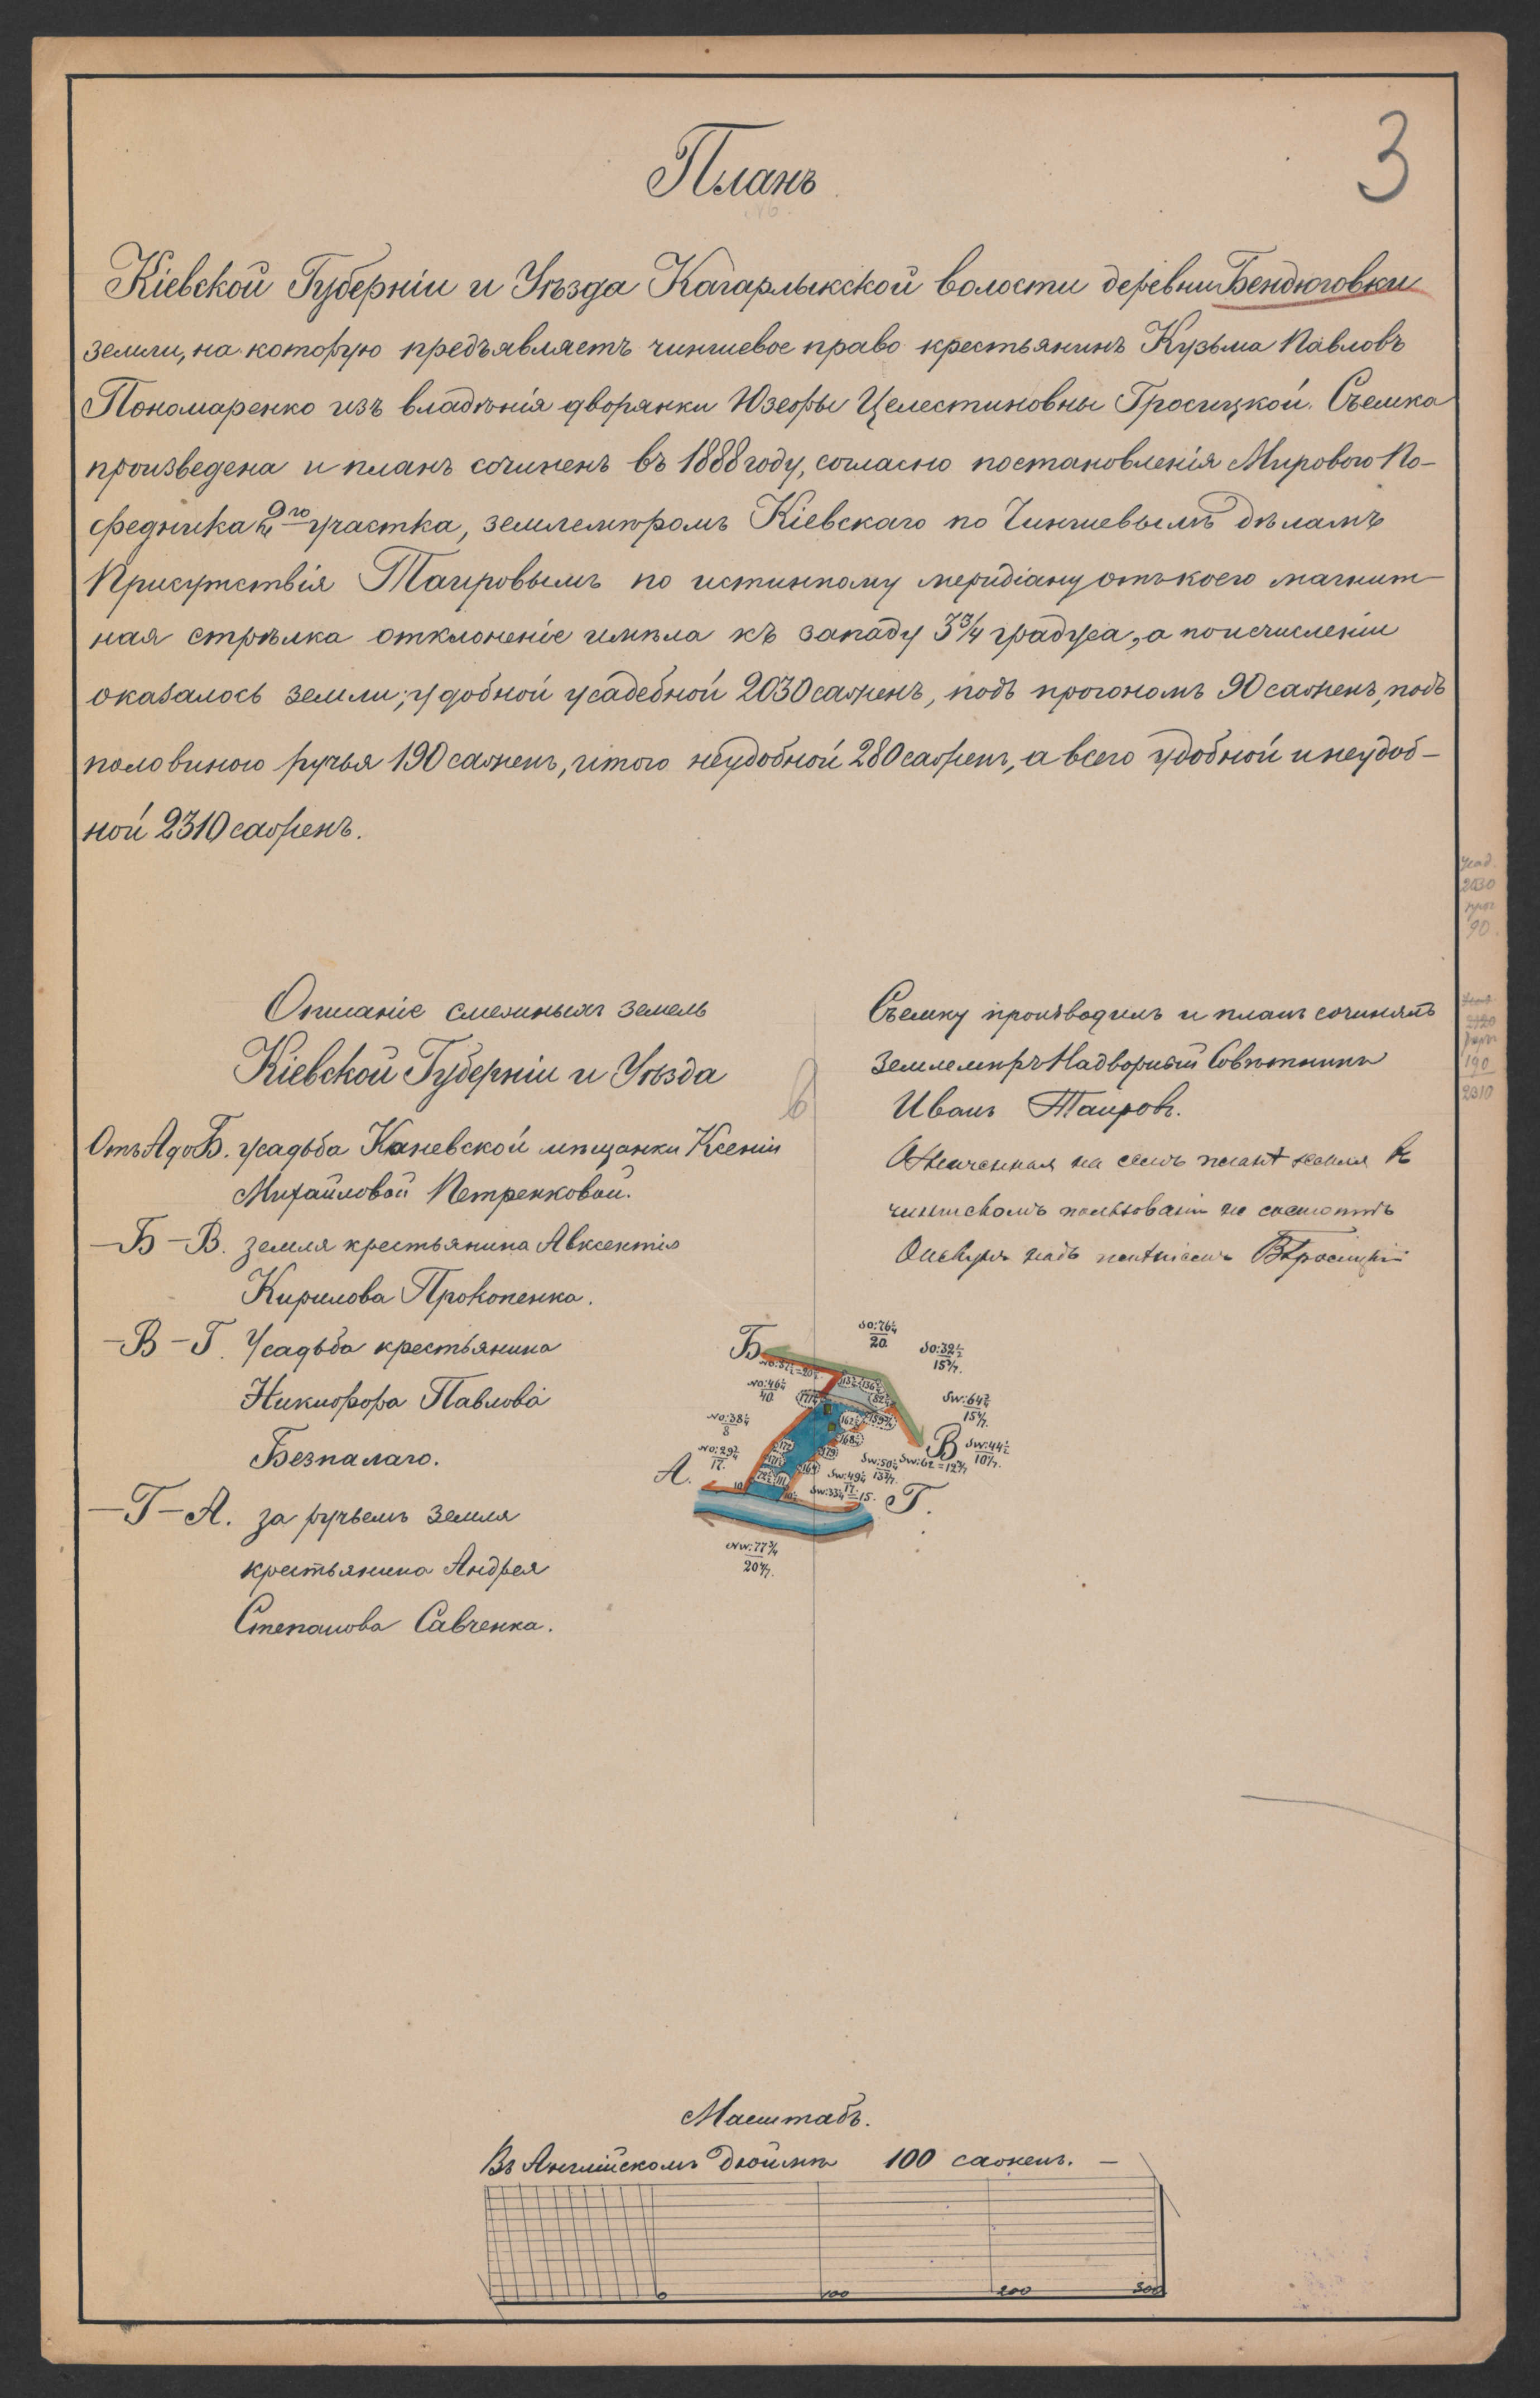 3
Планъ
Кіевской Губерніи и Уѣзда Кагарлыкской волости деревни Бендюговки
земли, на которую предъявляетъ чиншевое право крестьянинъ Кузьма Павловъ
Пономаренко изъ владѣнія дворянки Юзефы Целестиновны Гросицкой. Съемка
произведена и планъ сочиненъ въ 1888 году, согласно постановленія Мирового По-
средника 2го участка, землемѣромъ Кіевскаго по Чиншевымъ дѣламъ
Присутствія Таировымъ по истинному меридіану отъ коего магнит-
ная стрѣлка отклоненіе имѣла къ западу 3¾ градуса, а по исчисленіи
оказалось земли; удобной усадебной 2030 сажень, подъ прогономъ 90 сажень, подъ
половиною ручья 190 сажень, итого неудобной 280 сажень, а всего удобной и неудоб-
ной 2310 сажень.
усад.
2030
прог
90.
190
2310
Описаніе смежныхъ земель
Кіевской Губерніи и Уѣзда
Отъ А до Б. усадьба Каневской мѣщанки Ксеніи
Михайловой Петренковой.
—Б—В. земля крестьянина Авксентія
Кирилова Прокопенка.
—В—Г. Усадьба крестьянина
Никифора Павлова
Безпалаго.
—Г—А. за ручьемъ земля
крестьянина Андрея
Степанова Савченка.
Съемку производилъ и планъ сочинялъ
Землемѣръ Надворный Совѣтникъ
Иванъ Таировъ.
на семъ планѣ земля въ
чиншевомъ пользованіи не состоитъ
Опекунъ надъ
Б
SO:76¼
20
SO:32½
15
NO:46¼
40
NO:38¼
8
SW:64¾
15
В
А.
NO:29¾
17.
SW:44½
10
Г.
NW:77¾
20
Масштабъ.
Въ Англійскомъ дюймѣ 100 сажень. —
0 100 200 300